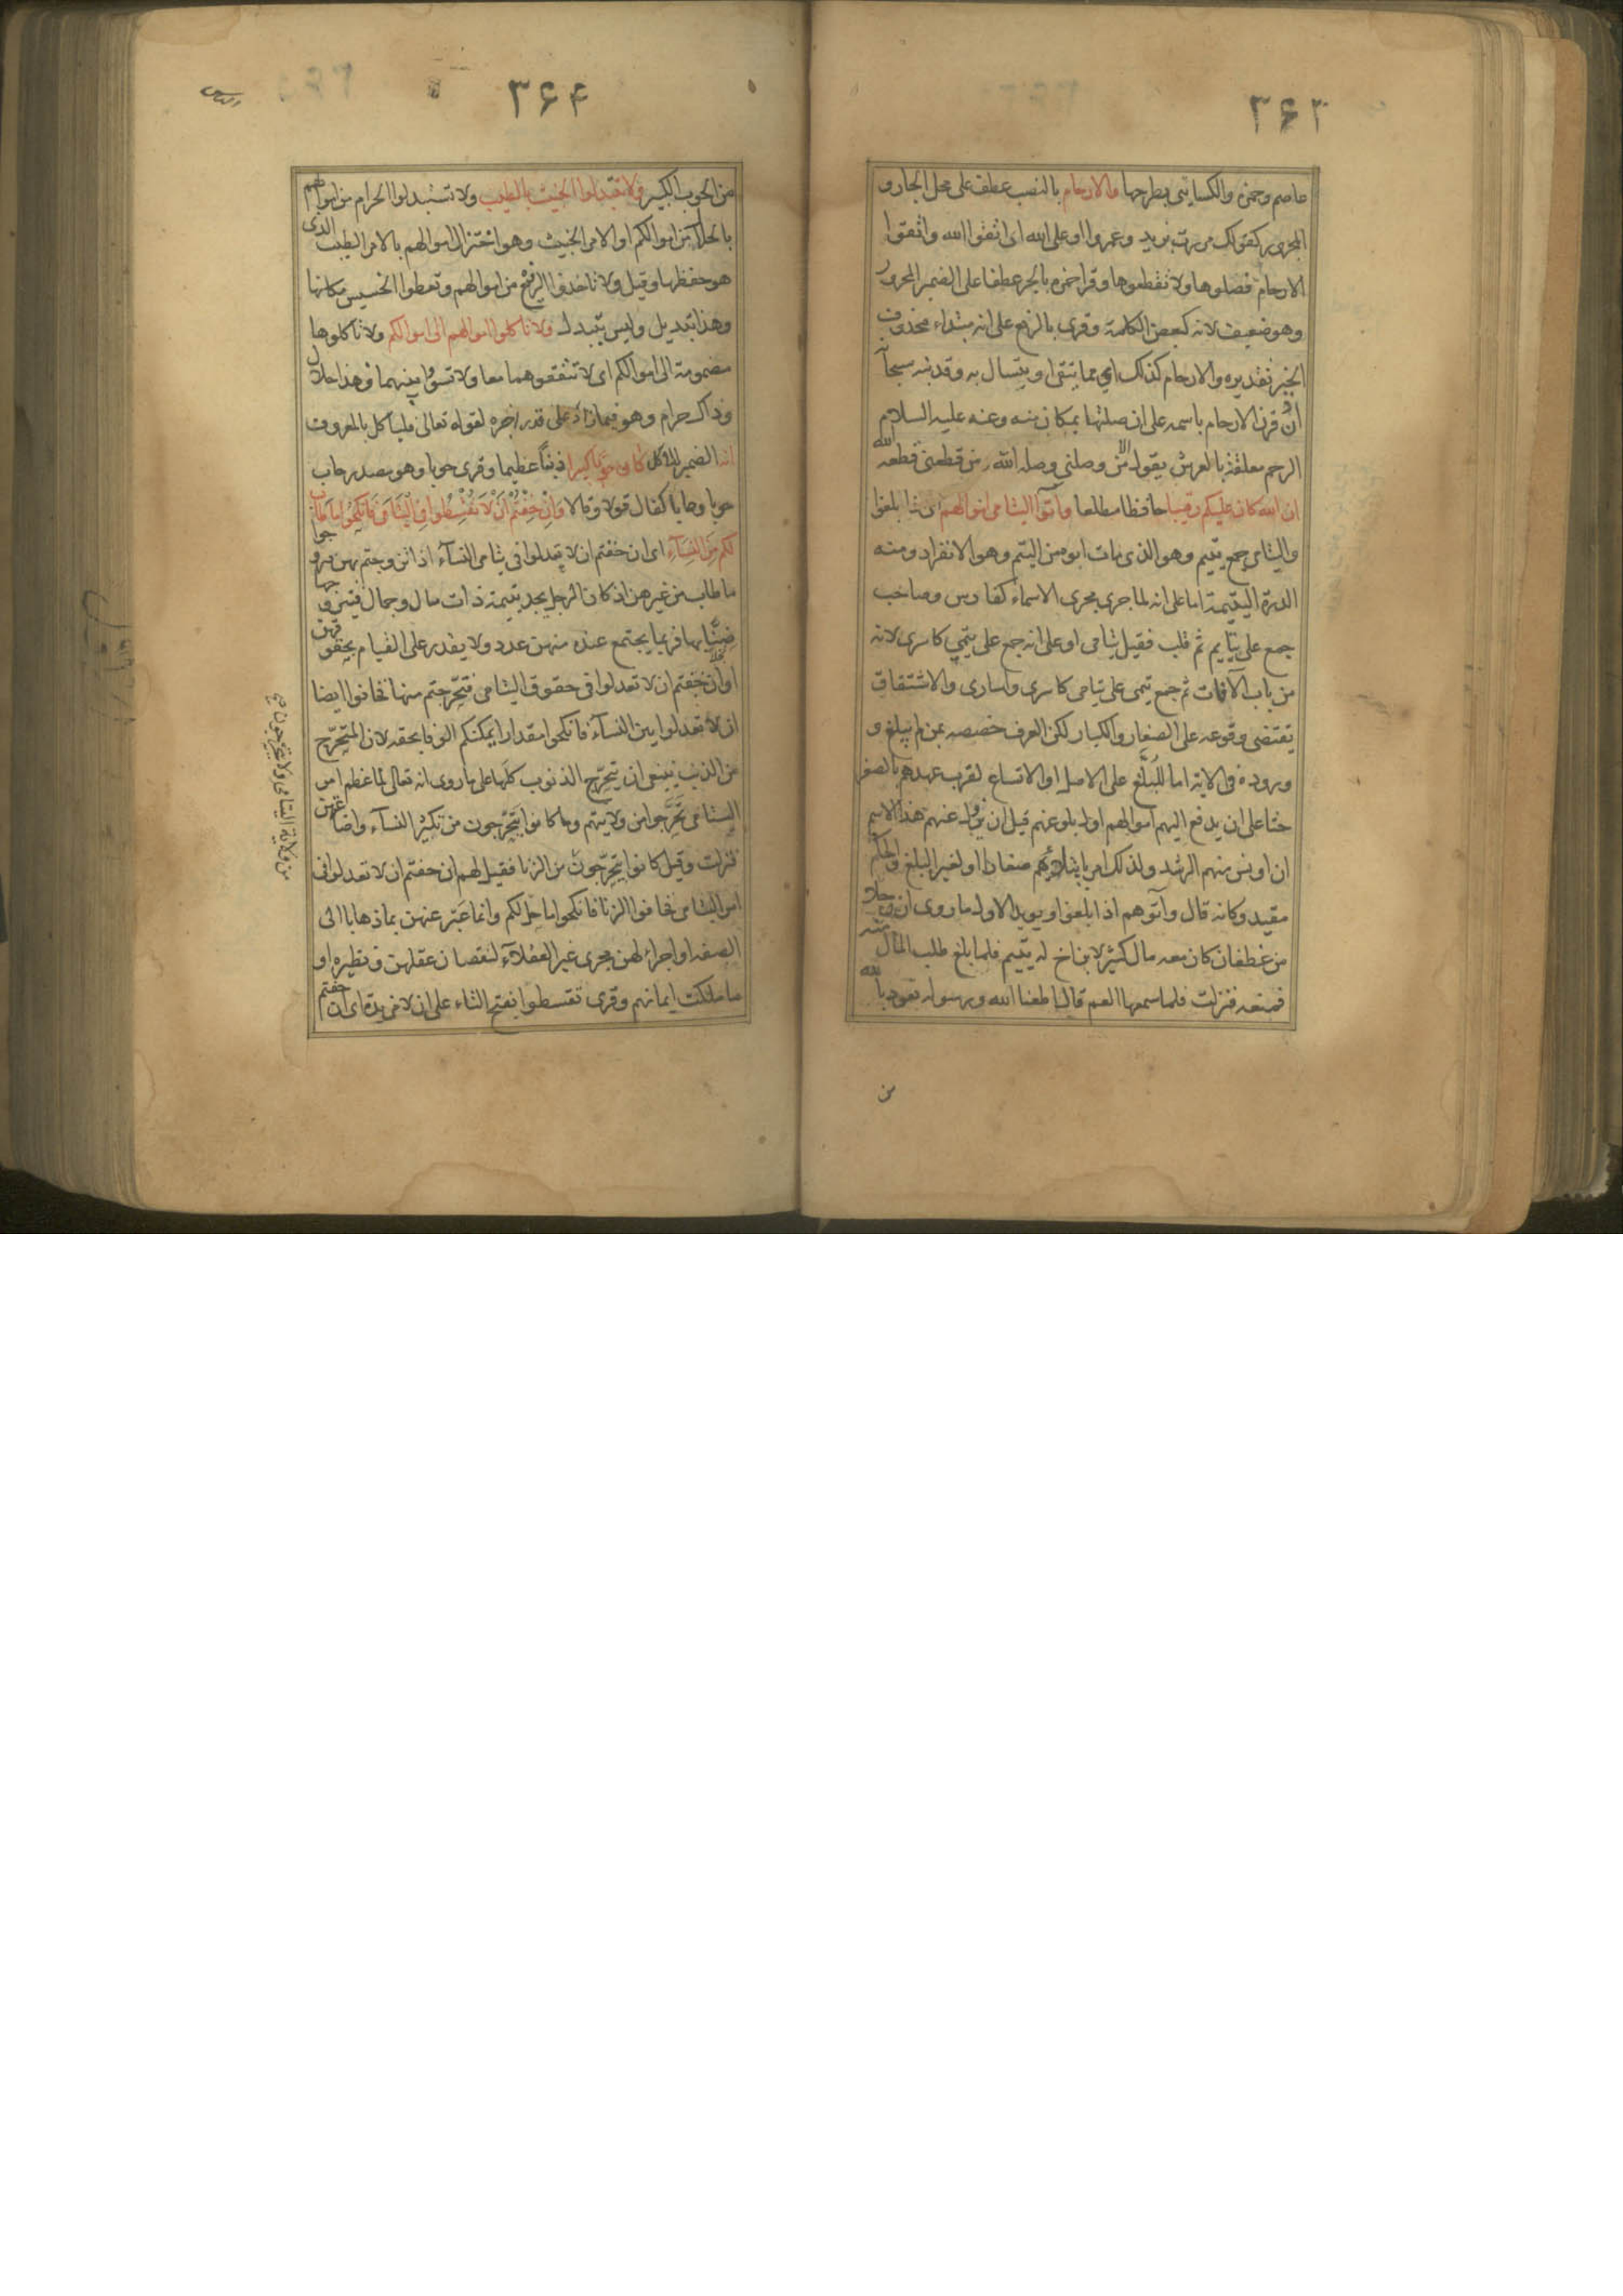 ۳۶۳
عاصم وحمزة والكسايئ بطرحها والارحام بالنصب عطف على محل الجار و
المجرور كقولك مررت بزيد وعمروا او على الله اى اتقوا الله واتقوا
الارحام فصلوها ولا تقطعوها وقرا حمزه بالجر عطفا على الضمير المجرور
وهو ضعيف لانه كبعض الكلمة وقرى بالرفع على انه مبتداء محذوف
الخبر تقديره والارحام كذلك اى مما يتقى او يتسال به وقد نبه سبحانه
ان قرن الارحام باسمه على ان صلتها بمكان منه وعنه عليه السلام
الرحم معلقة بالعرش يقول الا من وصلنى وصله الله ومن قطعنى قطعه الله
ان الله كان عليكم رقيبا حافظا مطلعا وآتوا اليتامى اموالهم اى اذا بلغوا
واليتامى جمع يتيم وهو الذى مات ابوه من اليتم وهو الانفراد ومنه
الدرة اليتيمة اما على انه لما جرى مجرى الاسماء كفارس وصاحب
جمع على يتايم ثم قلب فقيل يتامى او على انه جمع على يتمى كاسرى لانه
من باب الآفات ثم جمع يتمى على يتامى كاسرى واسارى والاشتقاق
يقتضى وقوعه على الصغار والكبار لكن العرف خصصه بمن لم يبلغ و
وروده فى الاية اما للبلغ على الاصل او الاتساع لقرب عهدهم بالصغر
حثا على ان يدفع اليهم اموالهم اول بلوغهم قبل ان يزول عنهم هذا الاسم
ان اونس منهم الرشد ولذلك امر بابتلائهم صغارا او لغير البلغ والحكم
مقيد وكانه قال وآتوهم اذا بلغوا ويويد الاول ما روى ان رجلا
من غطفان كان معه مال كثير لابن اخ له يتيم فلما بلغ طلب المال منه
فمنعه فنزلت فلما سمعها العم قال اطعنا الله ورسوله نعوذ بالله
من
۳۶۴
من الحوب الكبير ولا تتبدلوا الخبيث بالطيب ولا تستبدلوا الحرام من اموالهم
بالحلال من اموالكم او الامر الخبيث وهو اختزال اموالهم بالامر الطيب الذى
هو حفظها وقيل ولا تاخذوا الرفيع من اموالهم وتعطوا الخسيس مكانها
وهذا تبديل وليس بتبدل ولا تاكلوا اموالهم الى اموالكم ولا تاكلوها
مضمومة الى اموالكم اى لا تنفقوهما معا ولا تسووا بينهما وهذا حلال
وذاك حرام وهو فيما زاد على قدر اجره لقوله تعالى فلياكل بالمعروف
انه الضمير للاكل كان حوبا كبيرا ذنبا عظيما وقرى حوبا وهو مصدر حاب
حوبا وحابا كقال قولا وقالا وَاِنْ خِفْتُمْ اَنْ لَا تُقْسِطُوا فِى الْيَتَامَى فَانْكِحُوا مَا طَابَ
لَكُمْ مِنَ النِّسَآءِ اى ان خفتم ان لا تعدلوا فى يتامى النسآء اذا تزوجتم بهن فتزوجوا
ما طاب من غيرهن اذ كان الرجل يجد يتيمة ذات مال وجمال فيتزوجها
ضنّا بها فربما يجتمع عنده منهن عدد ولا يقدر على القيام بحقوقهن
او ان خفتم ان لا تعدلوا فى حقوق اليتامى فتحرجتم منها فخافوا ايضا
ان لا تعدلوا بين النسآء فانكحوا مقدارا يمكنكم الوفا بحقه لان المتحرّج
من الذنب ينبغى ان يتحرّج الذنوب كلها على ما روى انه تعالى لما عظم امر
اليتامى تَحَرَّجوا من ولايتهم وما كانوا يتحرّجون من تكثير النسآء واضاعتهن
فنزلت وقيل كانوا يتحرّجون من الزنا فقيل لهم ان خفتم ان لا تعدلوا فى
امر اليتامى فخافوا الزنا فانكحوا ما حل لكم وانما عَبّر عنهن بما ذهابا الى
الصفه او اجراء لهن مجرى غير العقلآء لنقصان عقلهن ونظيره او
ما ملكت ايمانهم وقرى تقسطوا بفتح التاء على ان لا مزيدة اى ان خفتم
من ولاية اليتامى ولا يتحرجون